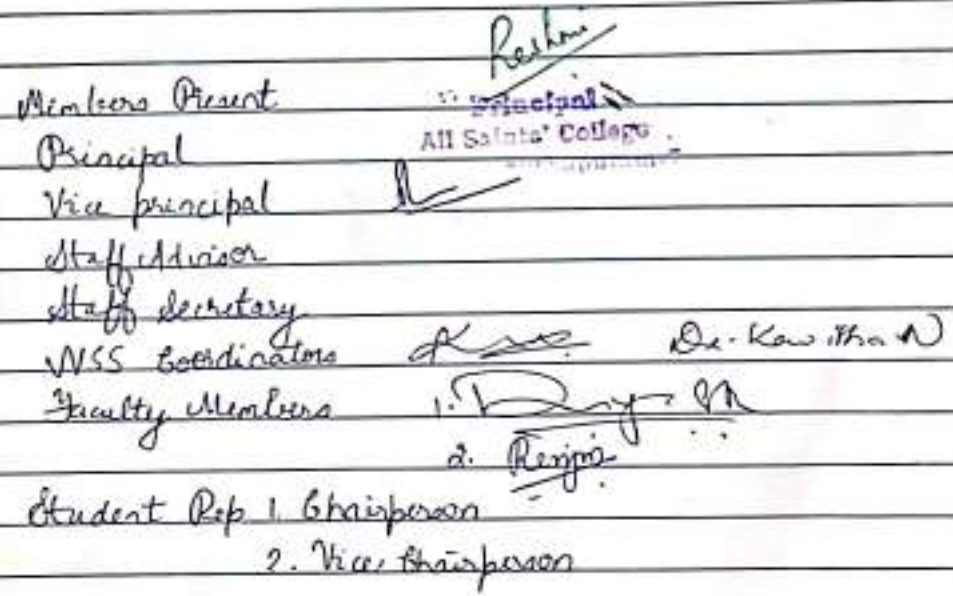 Reshmi
Members Present
Principal
All Saints' College
Principal
Vice principal
Staff Advisor
Staff Secretary
NSS Coordinators Dr. Kavitha N
Faculty Members 1.
2. Renjini
Student Rep 1. Chairperson
2. Vice Chairperson